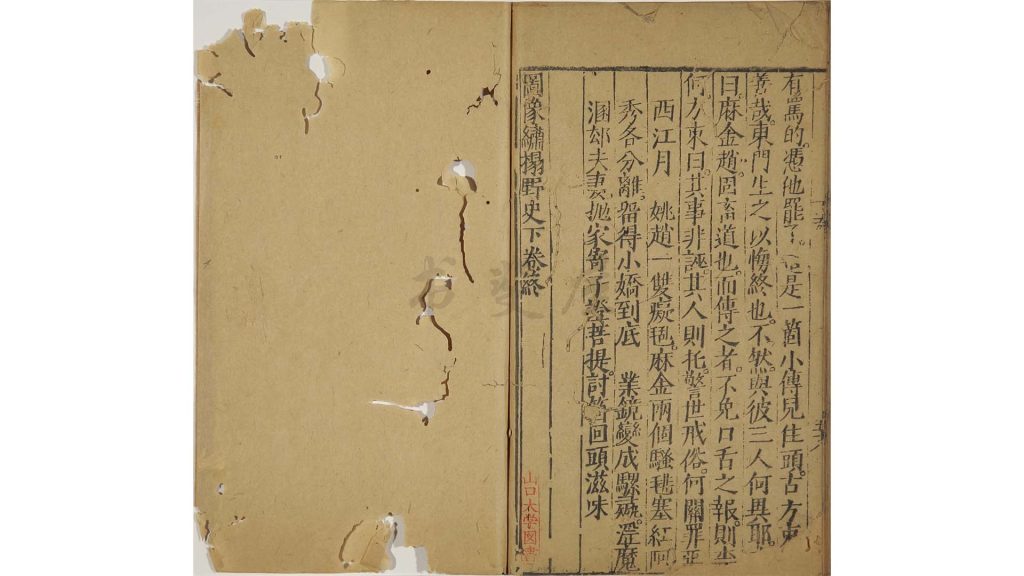 有罵的。憑他罷了。這是一箇小傳兒住頭。古方吏
善哉。東門生之以悔終也。不然與彼三人何異耶。
曰。麻金趙固畜道也。而傳之者。不免口舌之報。則
何。方吏曰。其事非誣。其人則托。警世戒俗。何關罪
西江月 姚趙一雙癡 麻金兩個騷 塞紅
秀各分離。畱得小嬌到底 業鏡變成騾 淫魔
溷郊夫妻拋家寄子 菩提討 回頭滋味
圖像繡榻野史下卷終
山口大学図書
书 府